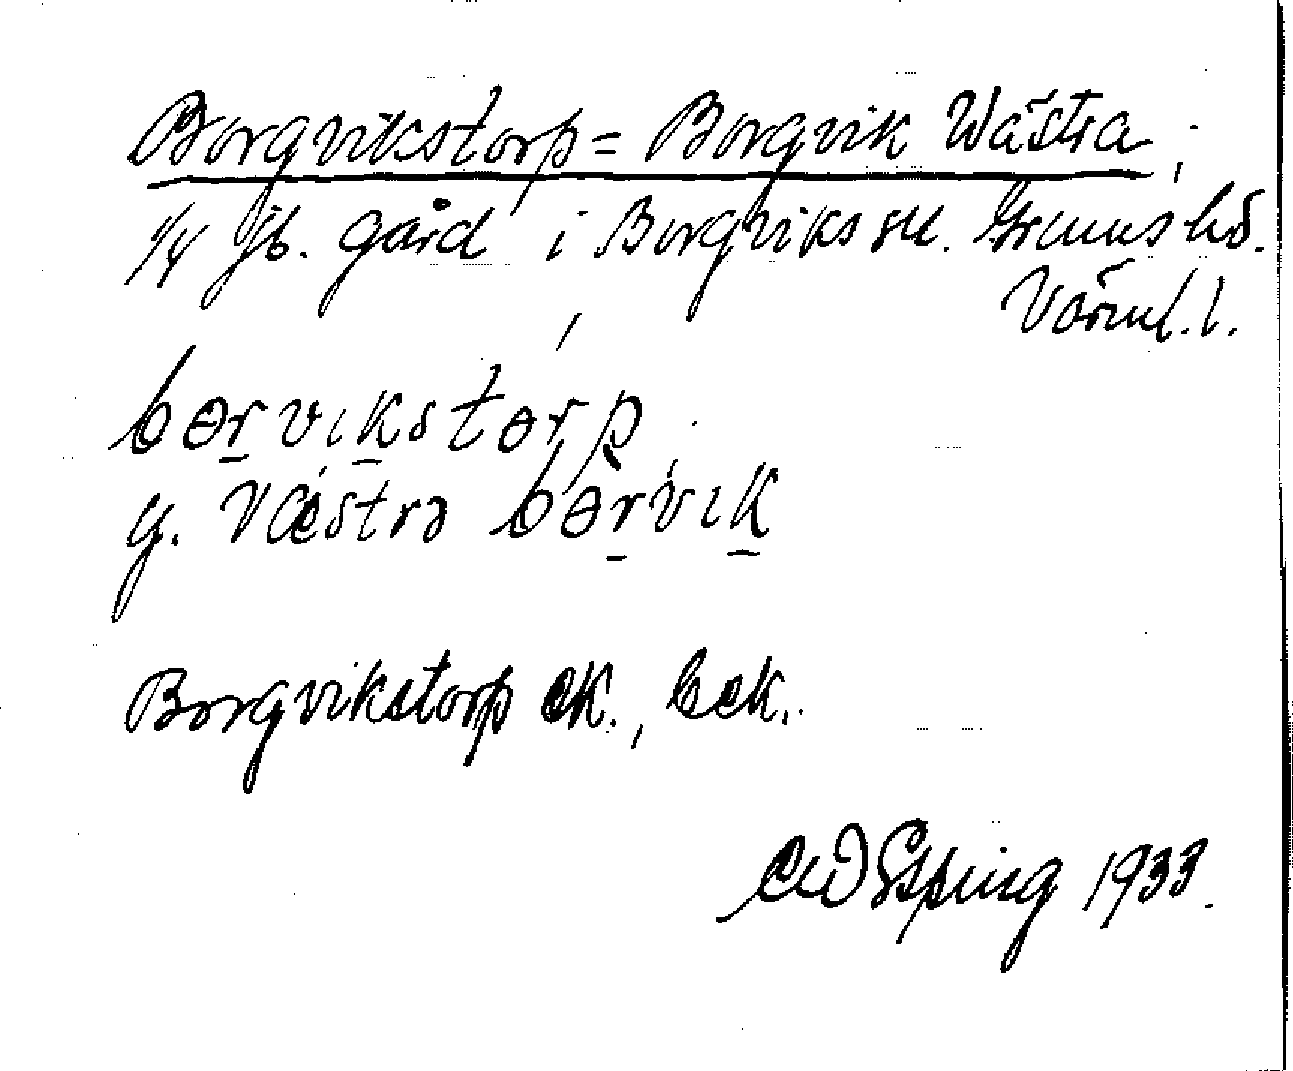 Borgvikstorp = Borgvik Wästra,
1/4 jb. gård i Borgviks sn. Grums hd.
Värml. l.
bɵrvɩkstɵrp
g. Væstrə bɵrvɩk
Borgvikstorp ek., Eek.
Esping 1933.